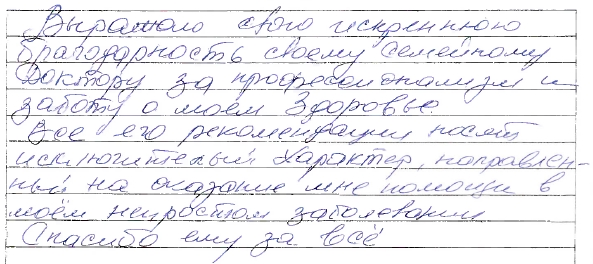 Выражаю свою искреннюю
благодарность своему семейному
доктору за професионализм и
заботу о моём здоровье.
Все его рекомендации носят
исключительный характер, направлен-
ный на оказание мне помощи в
моём непростом заболевании
Спасибо ему за всё